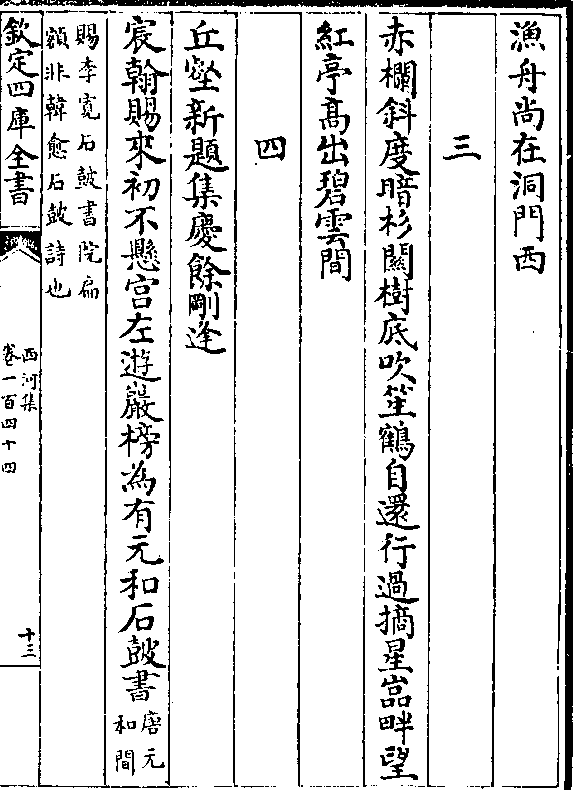 漁舟尚在洞門西
三
赤欄斜度暗杉關樹底吹笙鶴自還行過摘星嵓畔望
紅亭髙出碧雲間
四
丘壑新題集慶餘剛逢
宸翰賜來初不懸宫左遊嚴榜為有元和石鼓書唐元和間
賜李寛石鼓書院扁
額非韓愈石鼓詩也
欽定四庫全書
西河集
卷一百四十四
十三